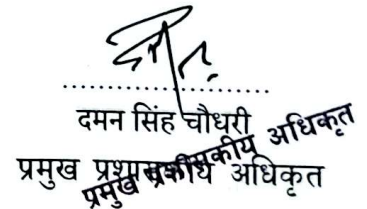 दमन सिंह चौधरी
प्रमुख प्रशासकीय अधिकृत
प्रमुख प्रशासकीय अधिकृत